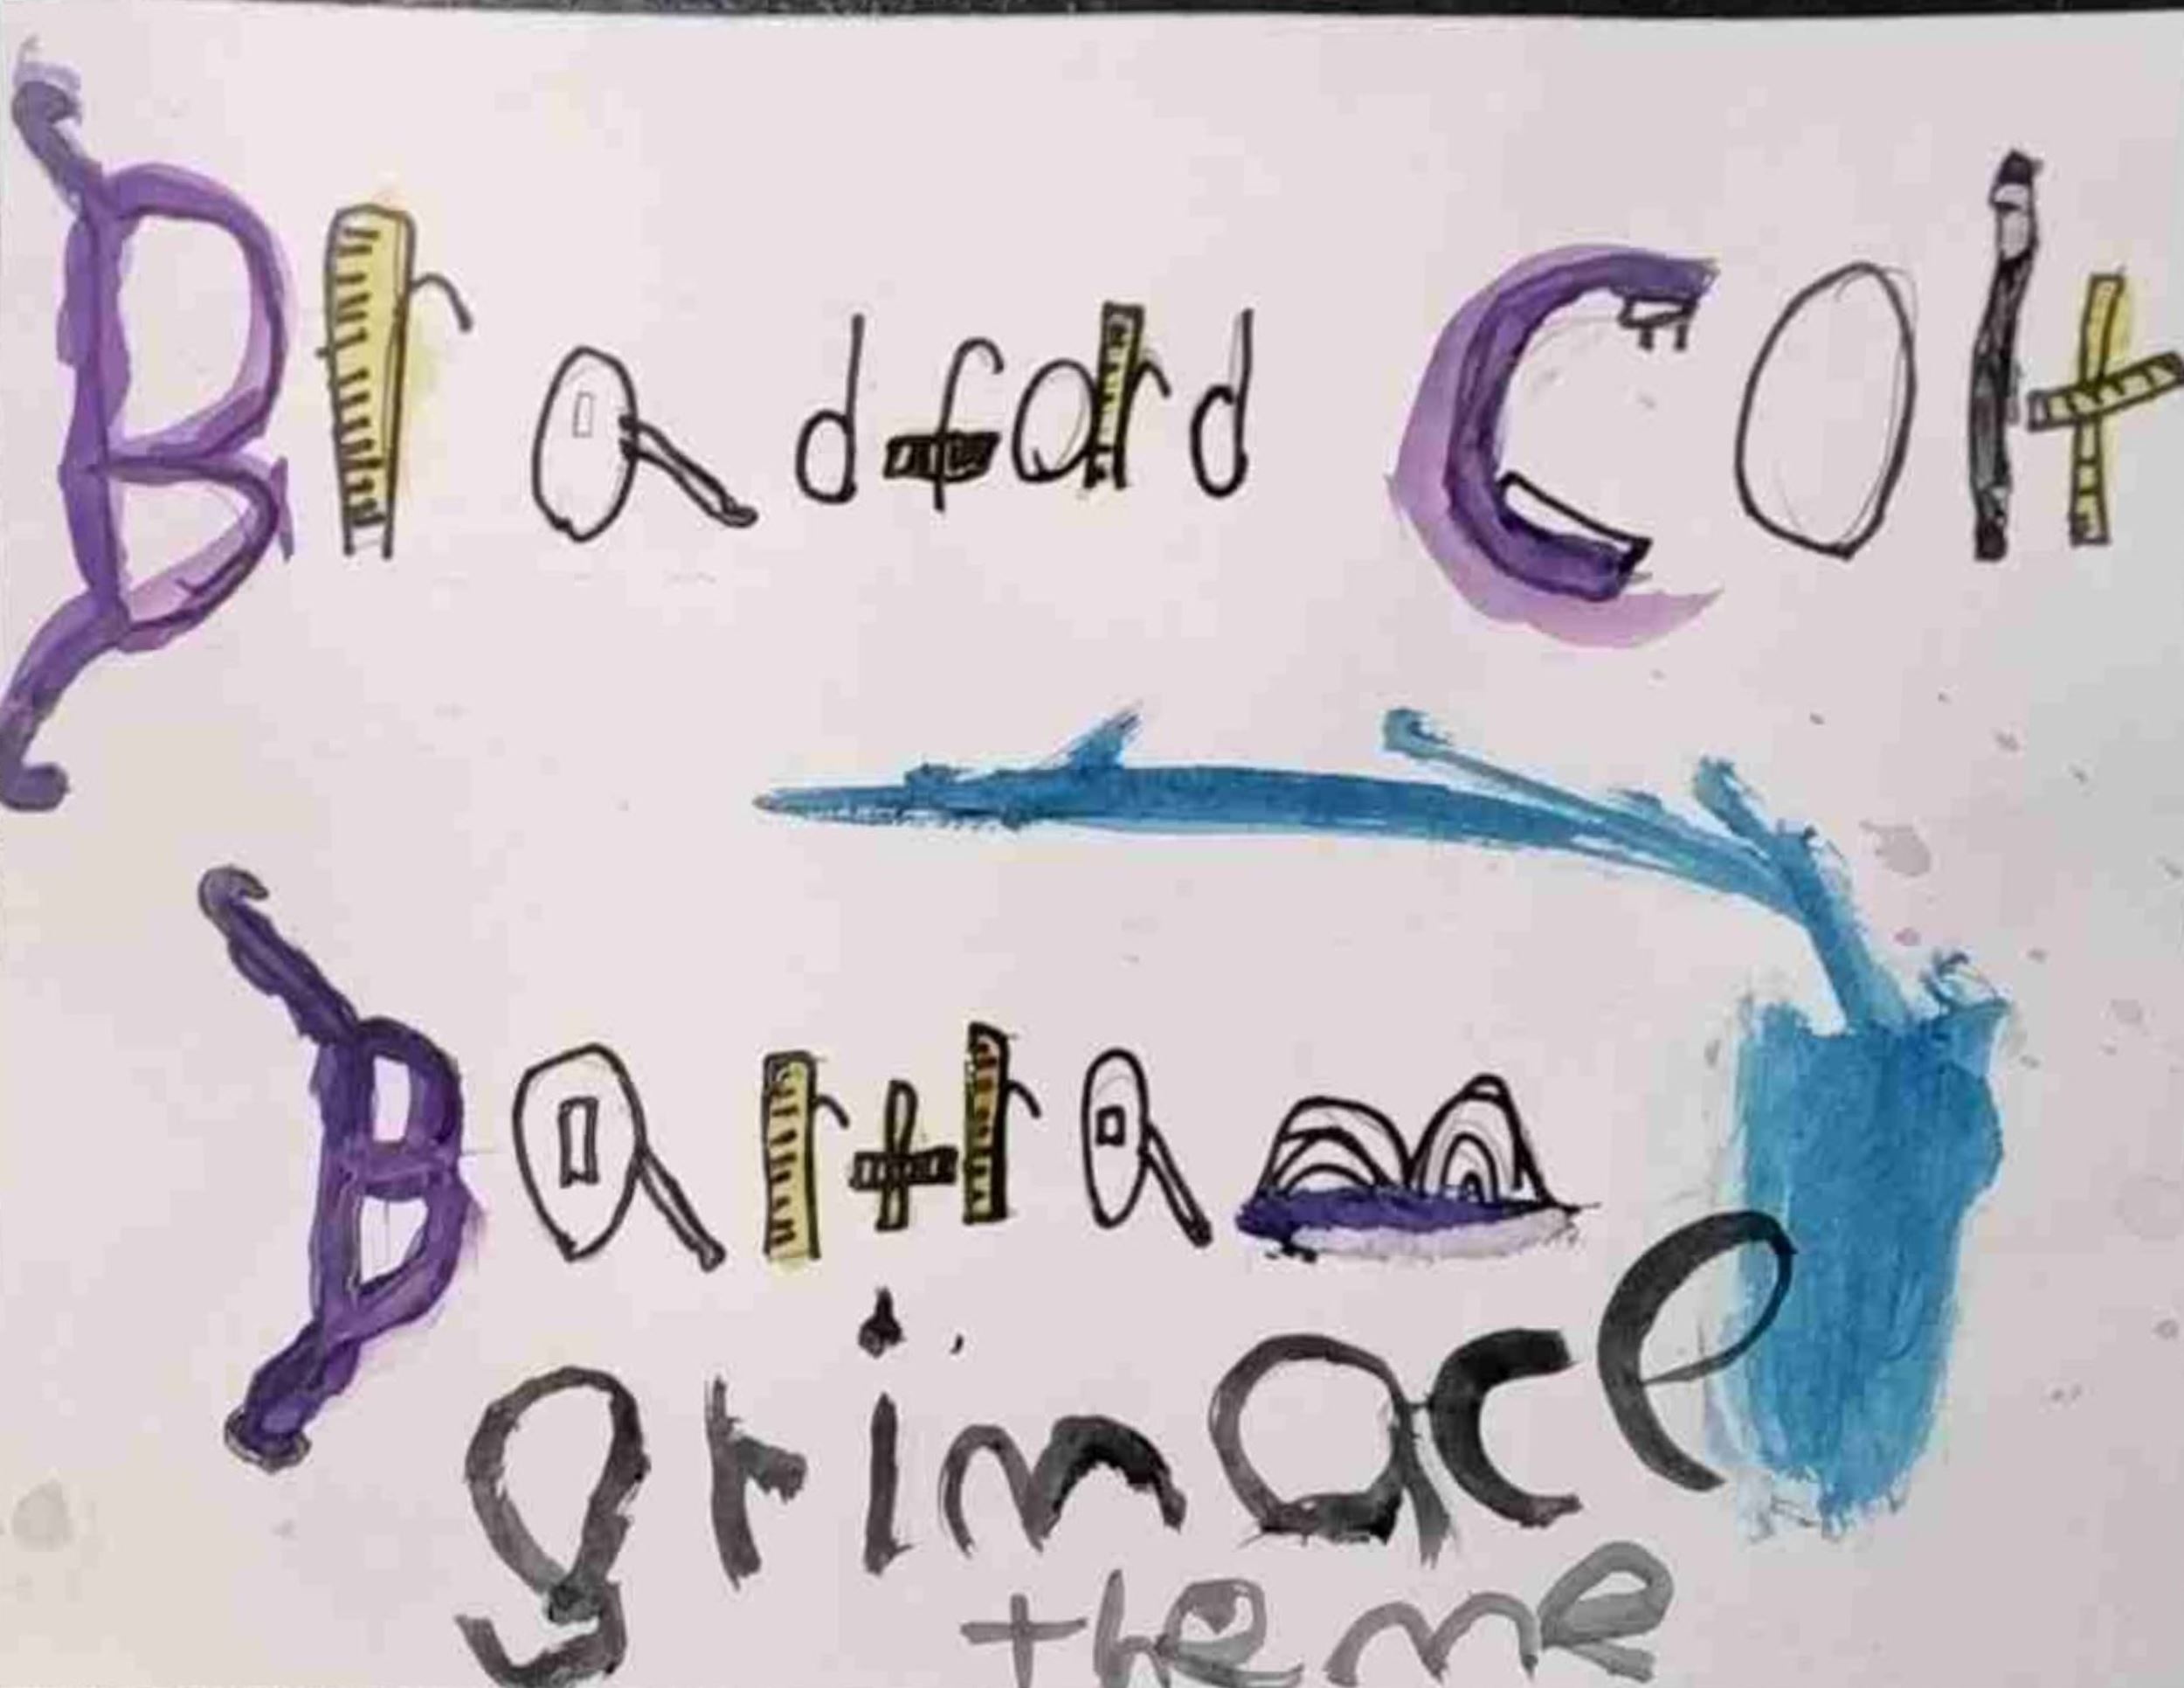 Bradford Colt
Bartram
grimace
theme